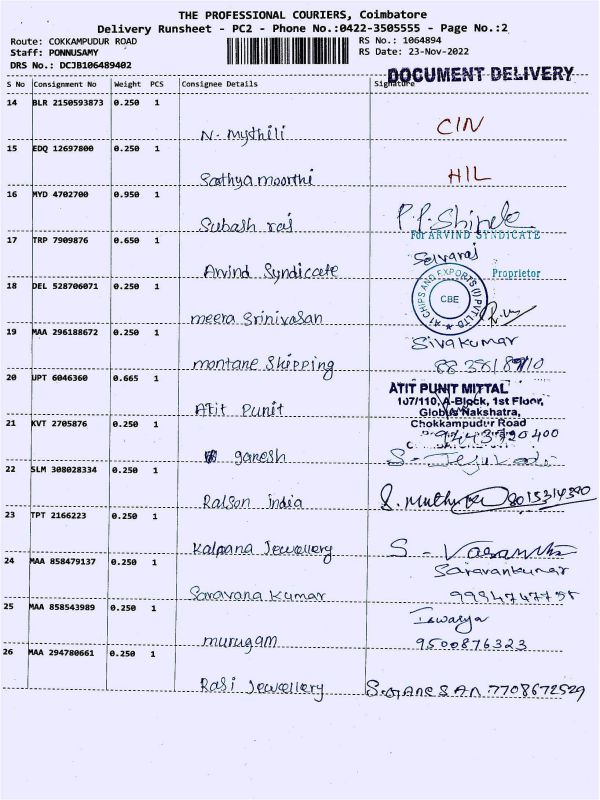 THE PROFESSIONAL COURIERS, Coimbatore
Delivery Runsheet - PC2 - Phone No.:0422-3505555 - Page No.:2
Route: COKKAMPUDUR ROAD
RS No.: 1064894
Staff: PONNUSAMY
RS Date: 23-Nov-2022
DRS No.: DCJB106489402
DOCUMENT DELIVERY
S No Consignment No Weight PCS Consignee Details Signature
14 BLR 2150593873 0.250 1
N. Mythili CIN
15 EDQ 12697800 0.250 1
Sathya moorthi HIL
16 MYD 4702700 0.950 1
Subash raj P.P. Shinde
For ARVIND SYNDICATE
17 TRP 7909876 0.650 1
Selvaraj
Arvind Syndicate Proprietor
18 DEL 528706071 0.250 1
A1 CHIPS AND EXPORTS (I) PVT LTD
CBE
meera Srinivasan
19 MAA 296188672 0.250 1
Sivakumar
montane Shipping
20 UPT 6046360 0.665 1
ATIT PUNIT MITTAL
107/110, A-Block, 1st Floor,
Atit Punit Globus Nakshatra,
21 KVT 2705876 0.250 1
Chokkampudur Road
9443720400
ganesh
22 SLM 308028334 0.250 1
Ralson india 8015314390
23 TPT 2166223 0.250 1
Kalpana Jewellery
24 MAA 858479137 0.250 1
Saravankumar
Saravana Kumar
25 MAA 858543989 0.250 1
Iswarya
murugam 9500876323
26 MAA 294780661 0.250 1
Rasi Jewellery S.GANESAN 7708672529